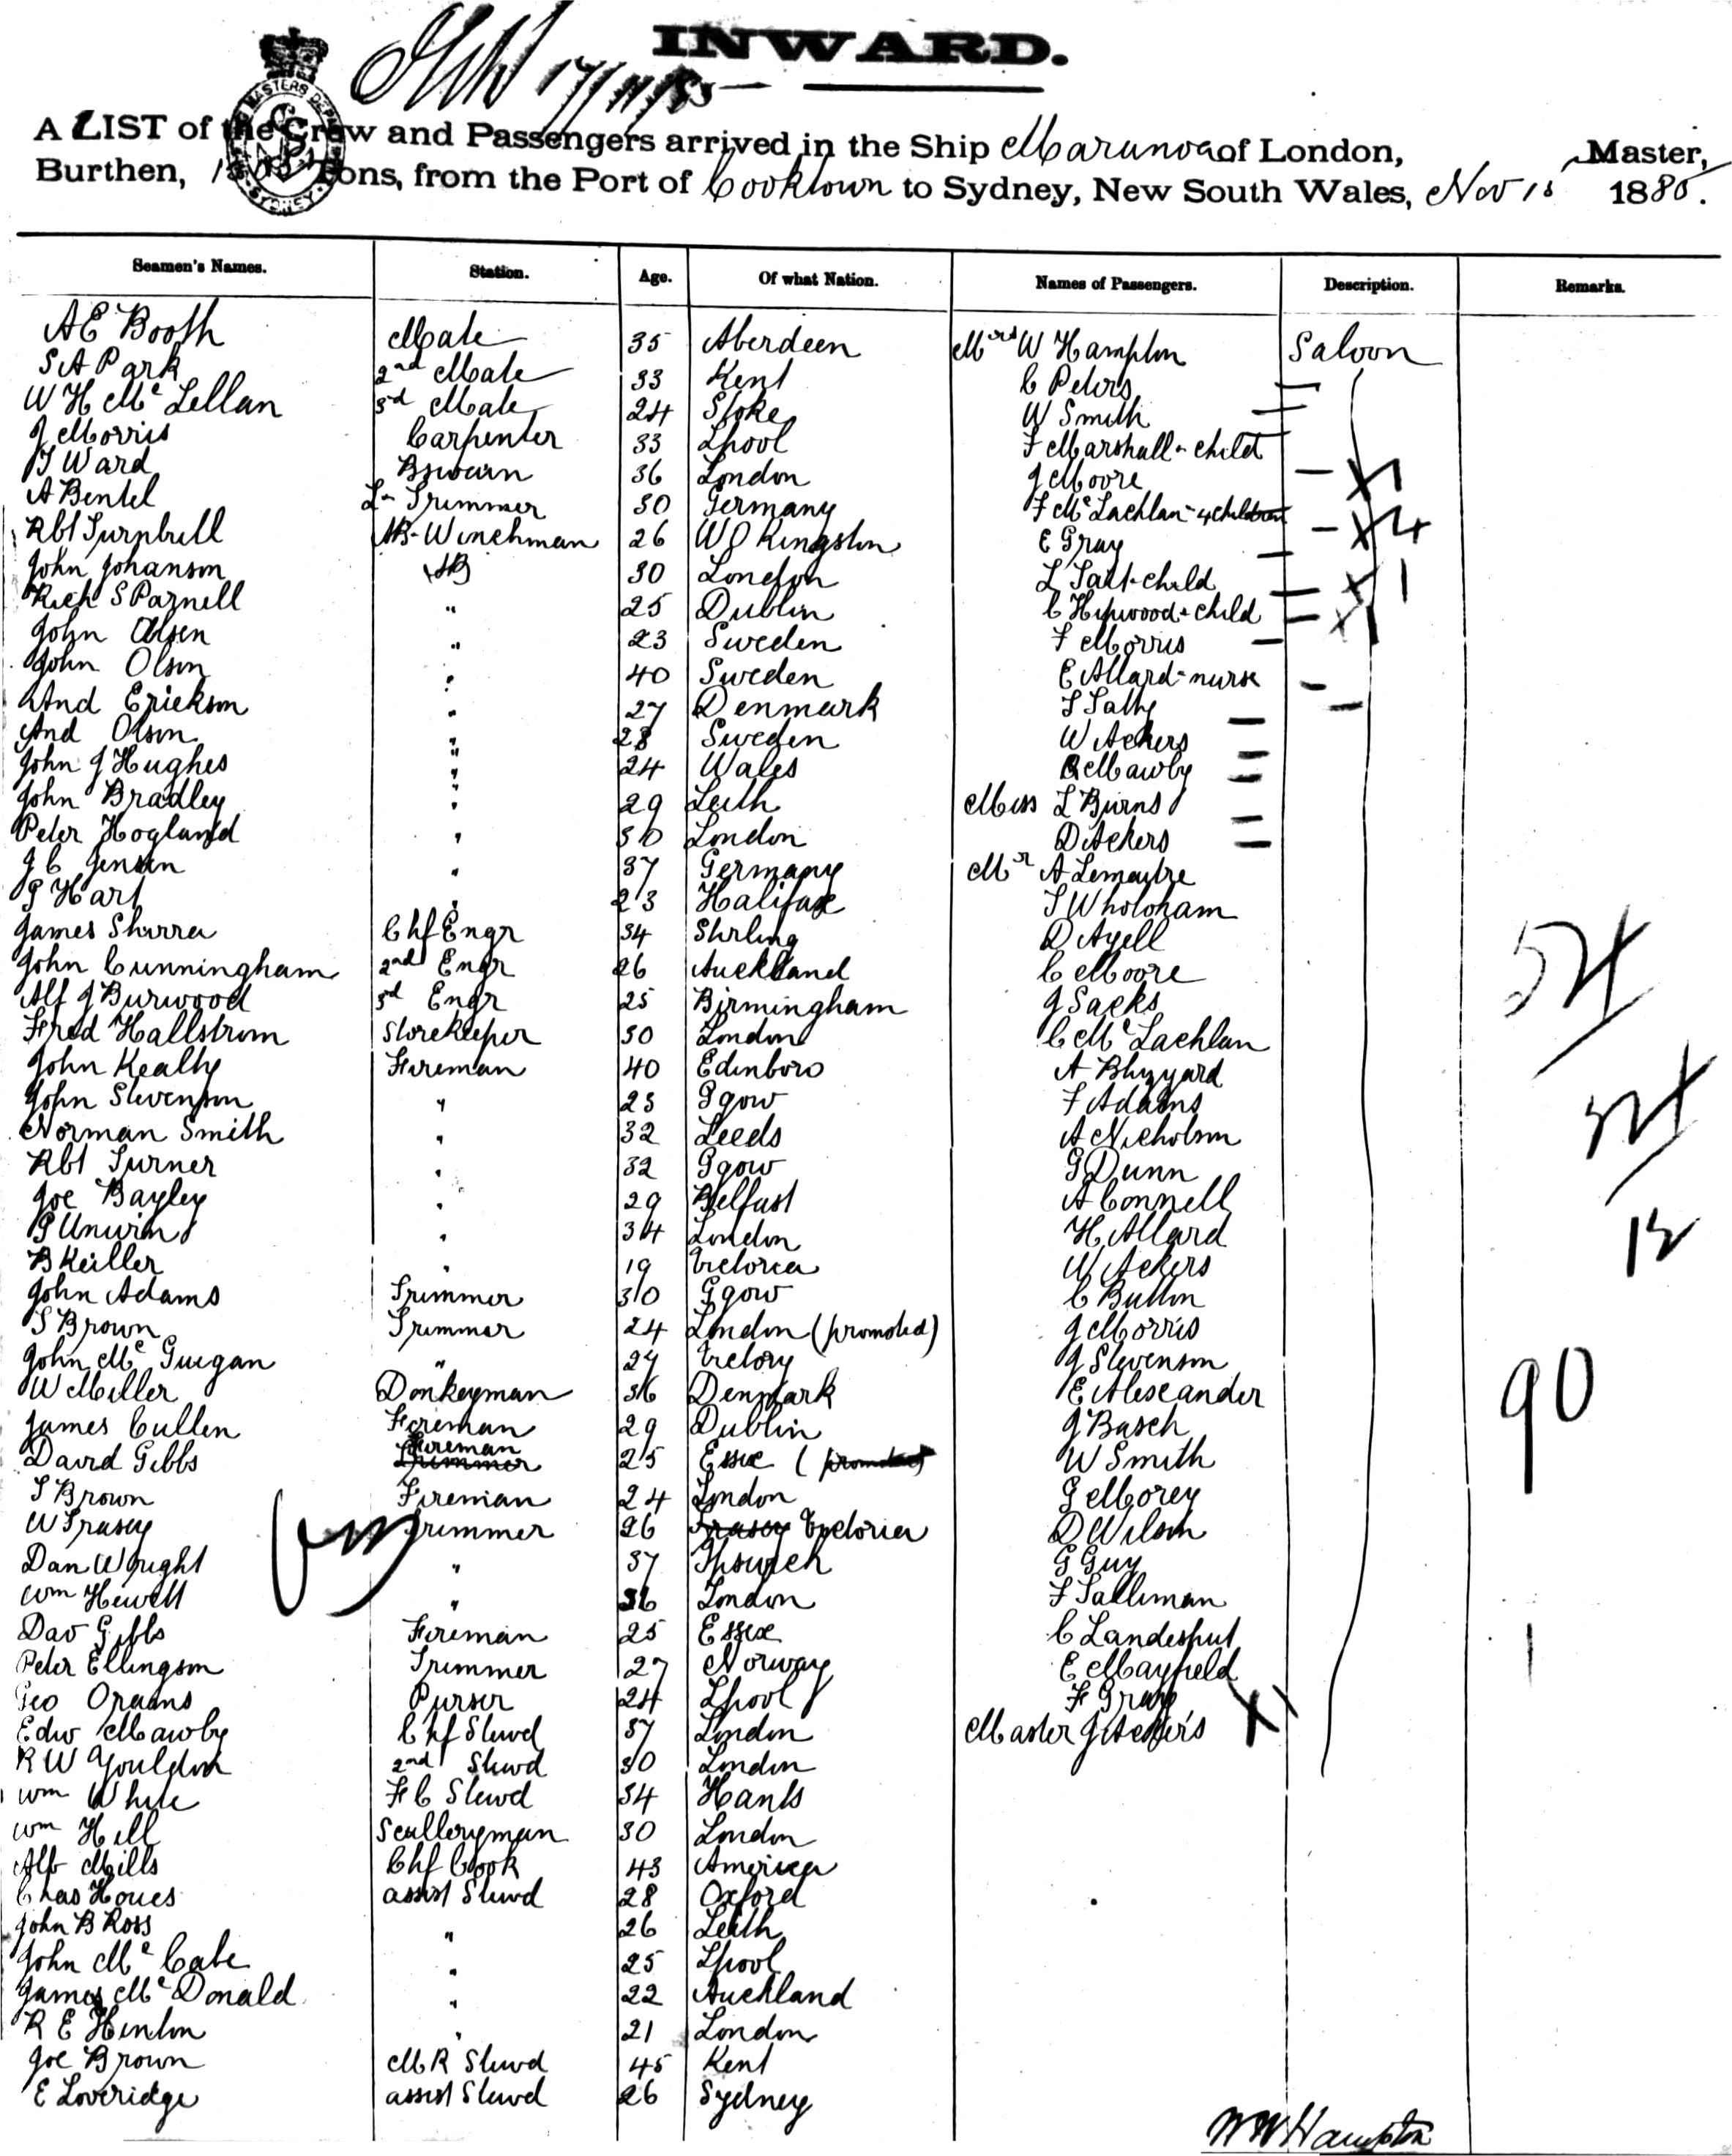 INWARD.
17/11/85
A LIST of the Crew and Passengers arrived in the Ship Marunoa of London, Master,
Burthen, Tons, from the Port of Cooktown to Sydney, New South Wales, Nov 15 1885.
Seamen's Names. Station. Age. Of what Nation. Names of Passengers. Description. Remarks.
A E Booth Mate 35 Aberdeen Mrs W Hampton Saloon
S A Park 2nd Mate 33 Kent C Peters
W H Mc Lellan 3d Mate 24 Stoke W Smith
J Morris Carpenter 33 Lpool F Marshall - child
T Ward Bswain 36 London J Moore
A Bentel L- Trimmer 30 Germany F Mc Lachlan - 4 children 4
Rbt Turnbull AB - Winchman 26 Kingston E Gray
John Johanson AB 30 London L Tait + child 1
Rich S Parnell " 25 Dublin C Hipwood + child 1
John Olsen " 23 Sweden F Morris
John Olson " 40 Sweden E Allard - nurse
And Erickson " 27 Denmark
And Olson " 28 Sweden W Ackers
John J Hughes " 24 Wales Mawby
John Bradley " 29 Leith Miss L Burns
Peter Hogland " 30 London D Ackers
J C Jensen " 37 Germany Mr A Lemaitre
Hart " 23 Halifax T Wholoham
James Shirra Chf Engr 34 Stirling D Ayell
John Cunningham 2nd Engr 26 Auckland C Moore
Alf J Burwood 3d Engr 25 Birmingham J Sacks
Fred Hallstrom Storekeeper 30 London C Mc Lachlan
John Kealty Fireman 40 Edinboro A Blizzard
John Stevenson " 23 Ggow F Adams
Norman Smith " 32 Leeds A Nicholson
Rbt Turner " 32 Ggow G Dunn
Joe Bayley " 29 Belfast A Connell
G Unwin " 34 London H Allard
B Keiller " 19 Victoria W Ackers
John Adams Trimmer 30 Ggow C Button
T Brown Trimmer 24 London (promoted) J Morris
John Mc Guigan " 27 J Stevenson
W Miller Donkeyman 36 Denmark E Alexander 90
James Cullen Fireman 29 Dublin J Basch
David Gibbs Fireman Trimmer 25 Essex (promoted) W Smith
T Brown Fireman 24 London G Morey
W Trasey Trimmer 26 Trasey Victoria D Wilson
Dan Wright " 37 Ipswich G Guy
Wm Hewett " 36 London F Talliman
Dav Gibbs Fireman 25 Essex C Landeshut
Peter Ellingson Trimmer 27 Norway E Mayfield
Geo Orams Purser 24 Lpool F Gray
Edw Mawby Chf Stewd 37 London Master J Ackers
R W Gouldon 2nd Stewd 30 London
Wm White F C Stewd 34 Hants
Wm Hill Sculleryman 30 London
Alf Mills Chf Cook 43 America
Chas Hones assist Stewd 28 Oxford
John B Ross " 26 Leith
John Mc Cabe " 25 Lpool
James Mc Donald " 22 Auckland
R E Henton " 21 London
Joe Brown M R Stewd 45 Kent
E Loveridge assist Stewd 26 Sydney
W W Hampton